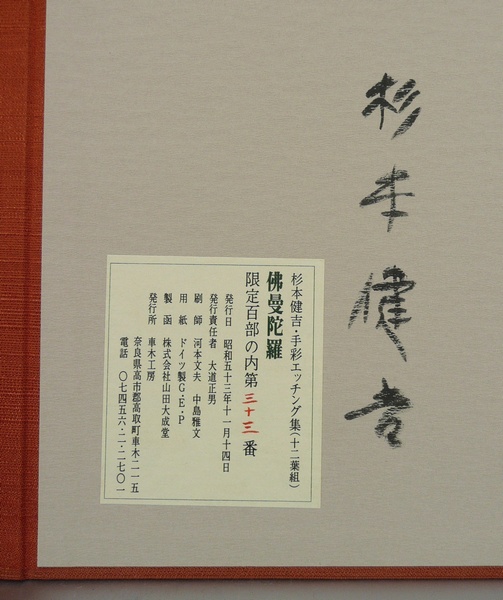 杉本健吉
杉本健吉・手彩エッチング集(十二葉組)
佛曼陀羅
限定百部の内第三十三番
発行日 昭和五十三年十一月十四日
発行責任者 大道正男
刷師 河本文夫 中島雅文
用紙 ドイツ製G・E・P
製函 株式会社山田大成堂
発行所 車木工房
奈良県高市郡高取町車木二一五
電話 〇七四五六・二・二七〇一